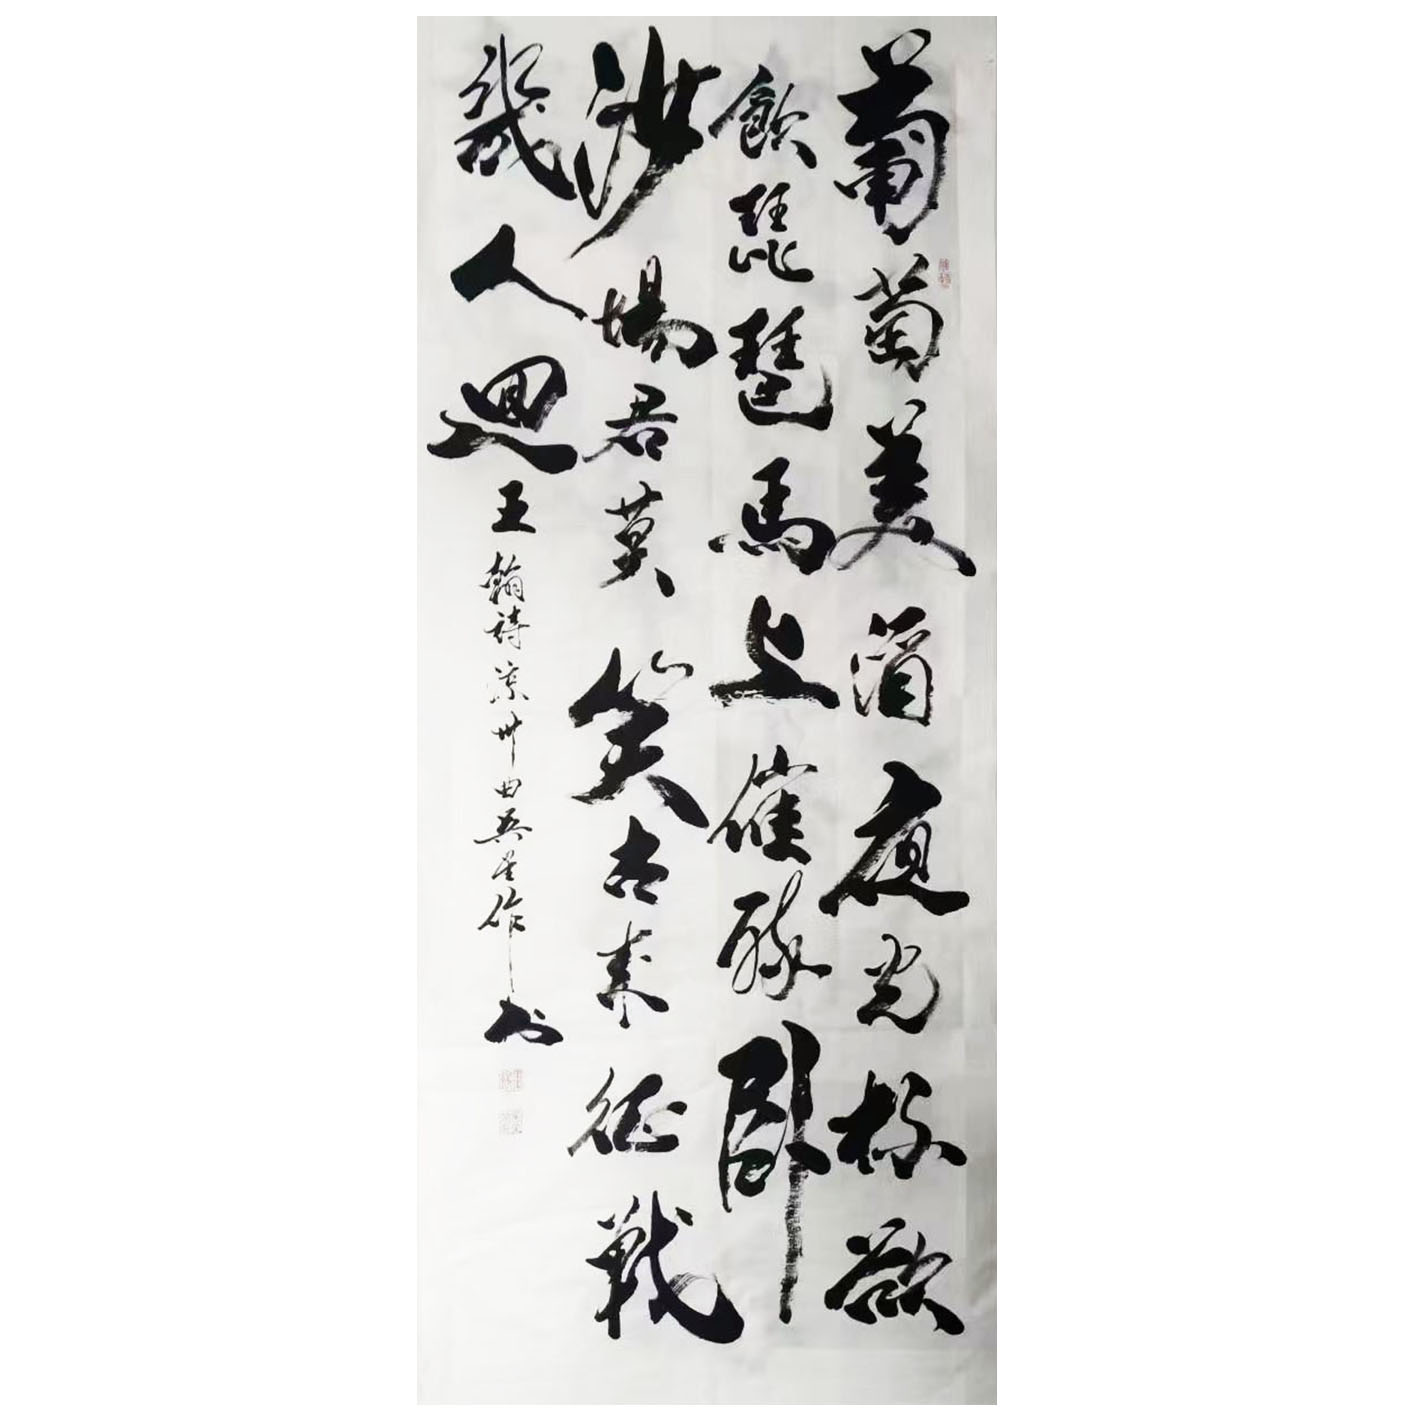 葡萄美酒夜光杯欲
飲琵琶馬上催醉卧
沙場君莫笑古来征戰
幾人回
王翰詩涼州曲吳星作书